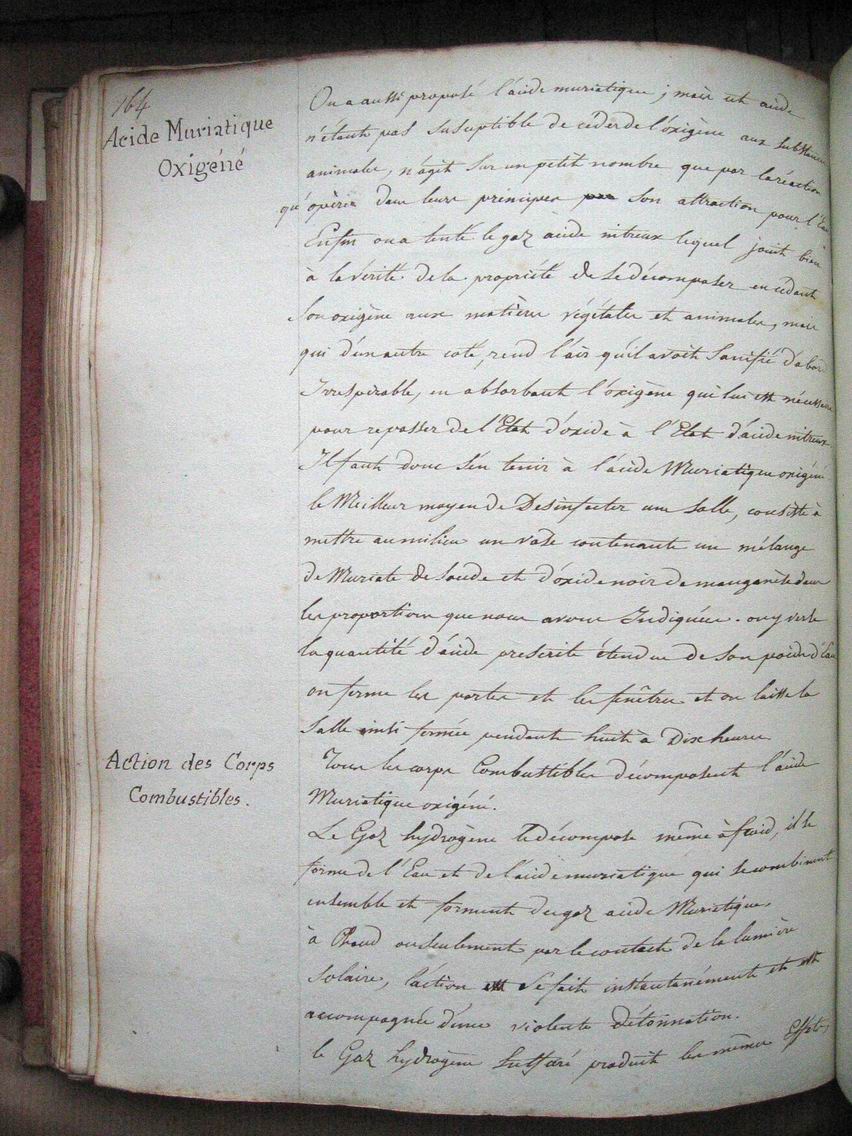 164
Acide Muriatique
Oxigéné
On a aussi proposé l'acide muriatique ; mais cet acide
n'étant pas susceptible de céder de l'oxigène aux substances
animales, n'agit sur un petit nombre que par la réaction
qu'opère dans leurs principes son attraction pour l'Eau
Enfin on a tenté le gaz acide nitreux lequel jouit bien
à la vérité de la propriété de se décomposer en cédant
son oxigène aux matières végétales et animales, mais
qui d'un autre coté, rend l'air qu'il avoit sanifié d'abord
Irrespirable, en absorbant l'oxigène qui lui est nécessaire
pour repasser de l'Etat d'oxide à l'Etat d'acide nitreux.
Il faut donc s'en tenir à l'acide Muriatique oxigéné
le Meilleur moyen de Desinfecter une salle, consiste à
mettre au milieu un vase contenant un mélange
de Muriate de soude et d'oxide noir de manganèse dans
les proportions que nous avons Indiquées. on y verse
la quantité d'acide prescrite étendue de son poids d'Eau
on ferme les portes et les fenêtres et on laisse la
Salle ainsi fermée pendant huit à Dix heures
Action des Corps
Combustibles.
Tous les corps Combustibles décomposent l'acide
Muriatique oxigéné.
Le Gaz hydrogène le décompose même à froid, il se
forme de l'Eau et de l'acide muriatique qui se combinent
ensemble et forment du gaz acide Muriatique.
à Chaud ou seulement par le contact de la lumière
solaire, l'action se fait instantanément et est
accompagnée d'une violente détonnation.
le Gaz hydrogène sulfuré produit les mêmes Effets